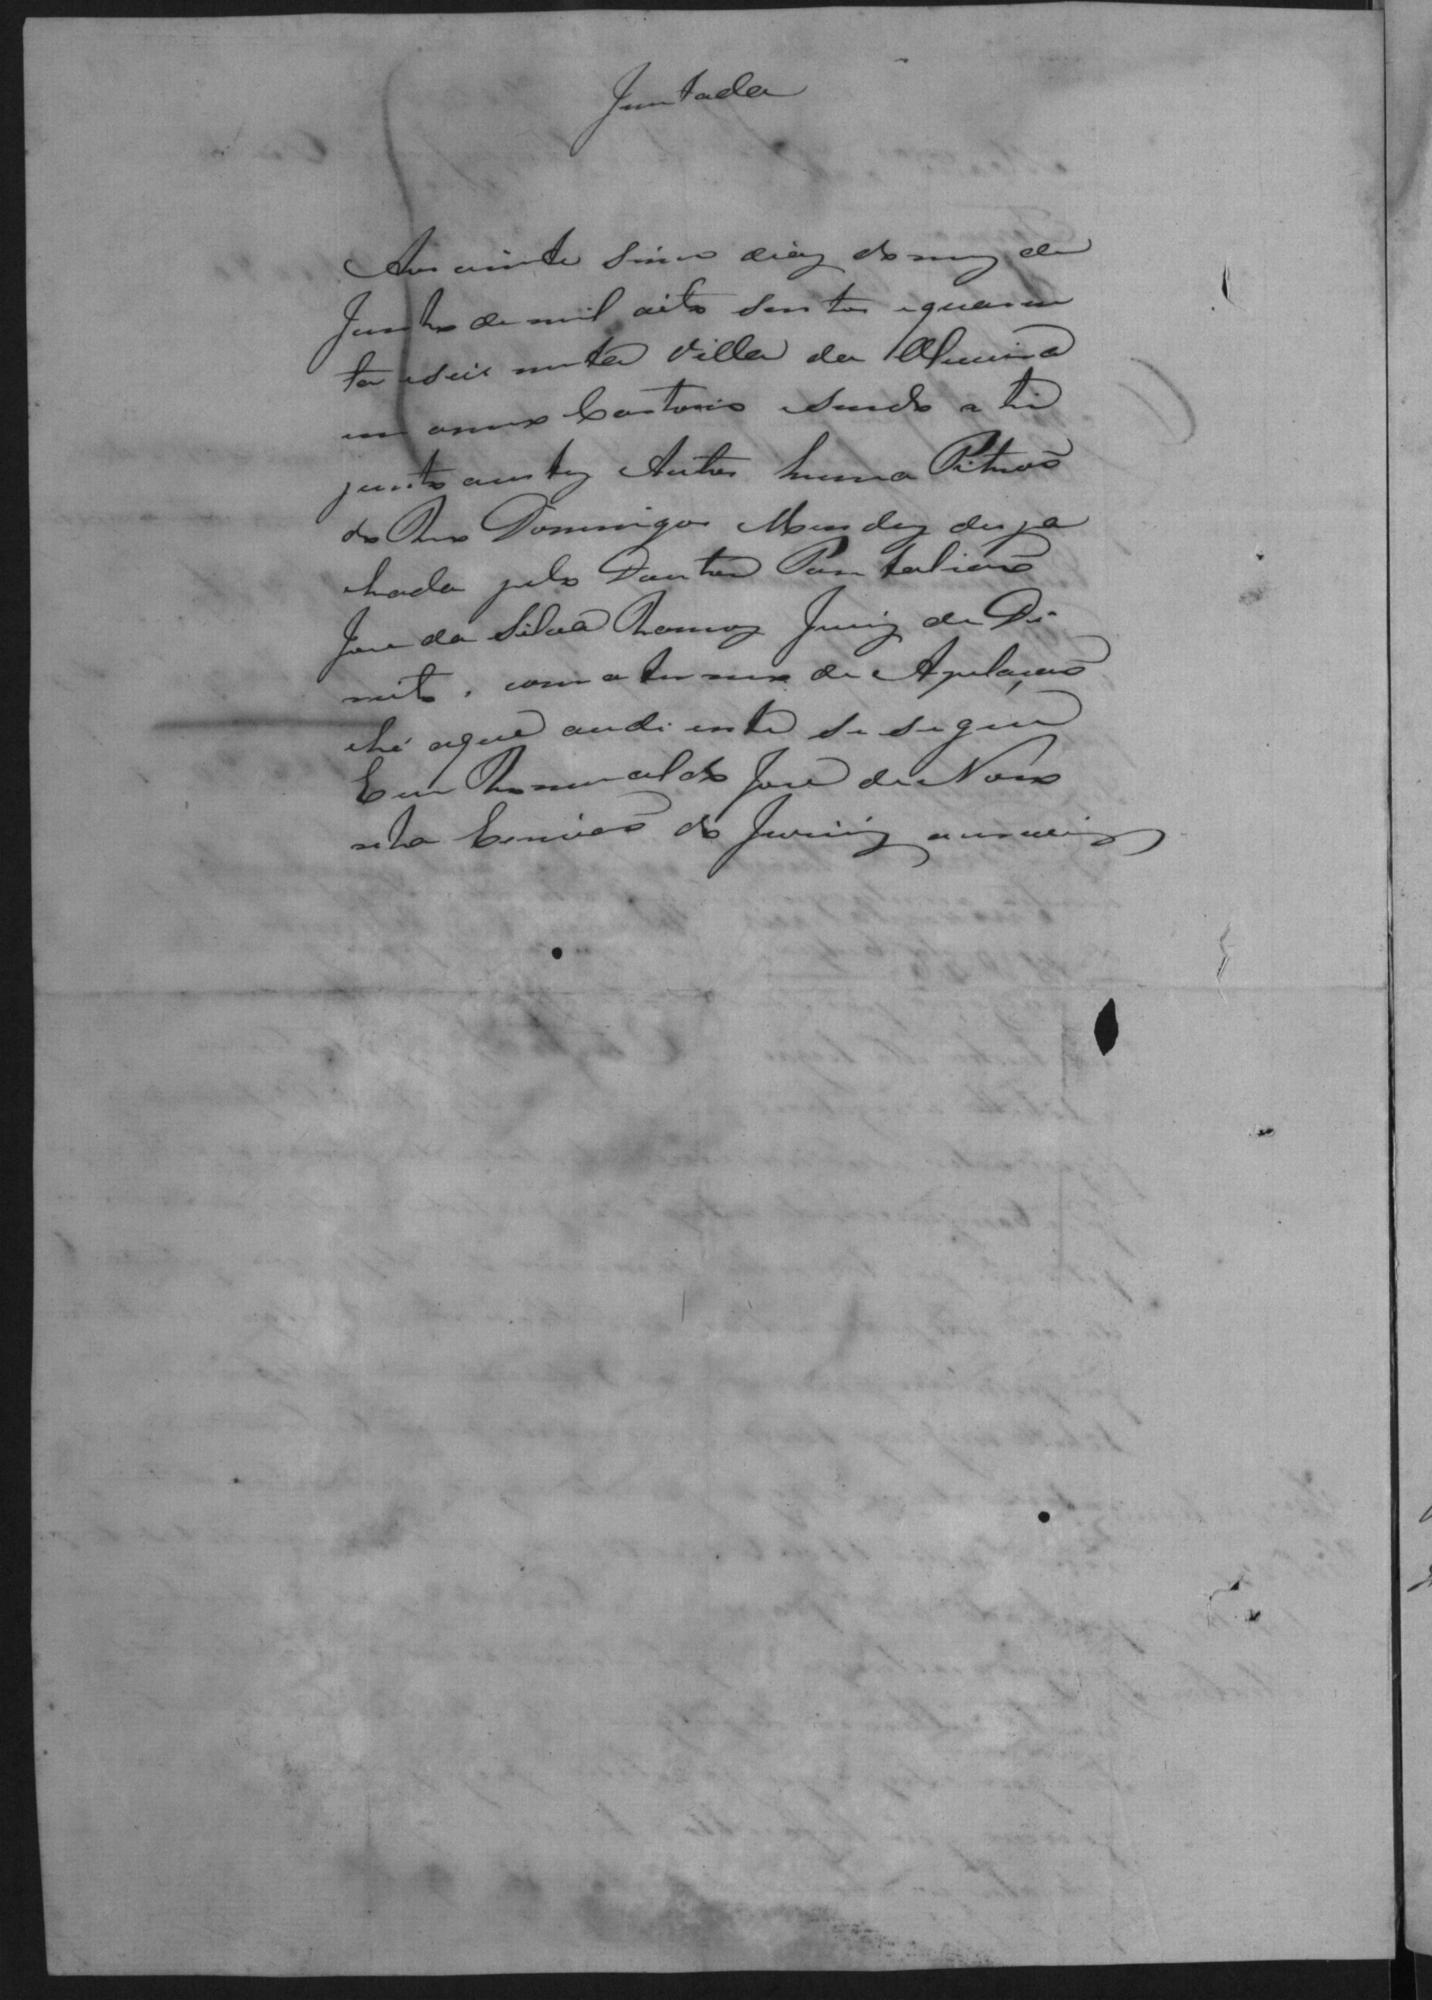 Juntada
Aos vinte sinco dias do mez de
Junho de mil oito sentos e quaren
ta e seis nesta Villa da
em o meu Cartorio sendo ahi
junto austes Autos huma Petição
do Reo Domingos Mendes despa
chada pelo Doutor Pantalião
Jose da Silva Ramos Juiz de Di-
reito, com o termo de Apelação
hé o que audiente se segue
Eu Romualdo José de Noro
nha Escrivão do Juri que escrevi